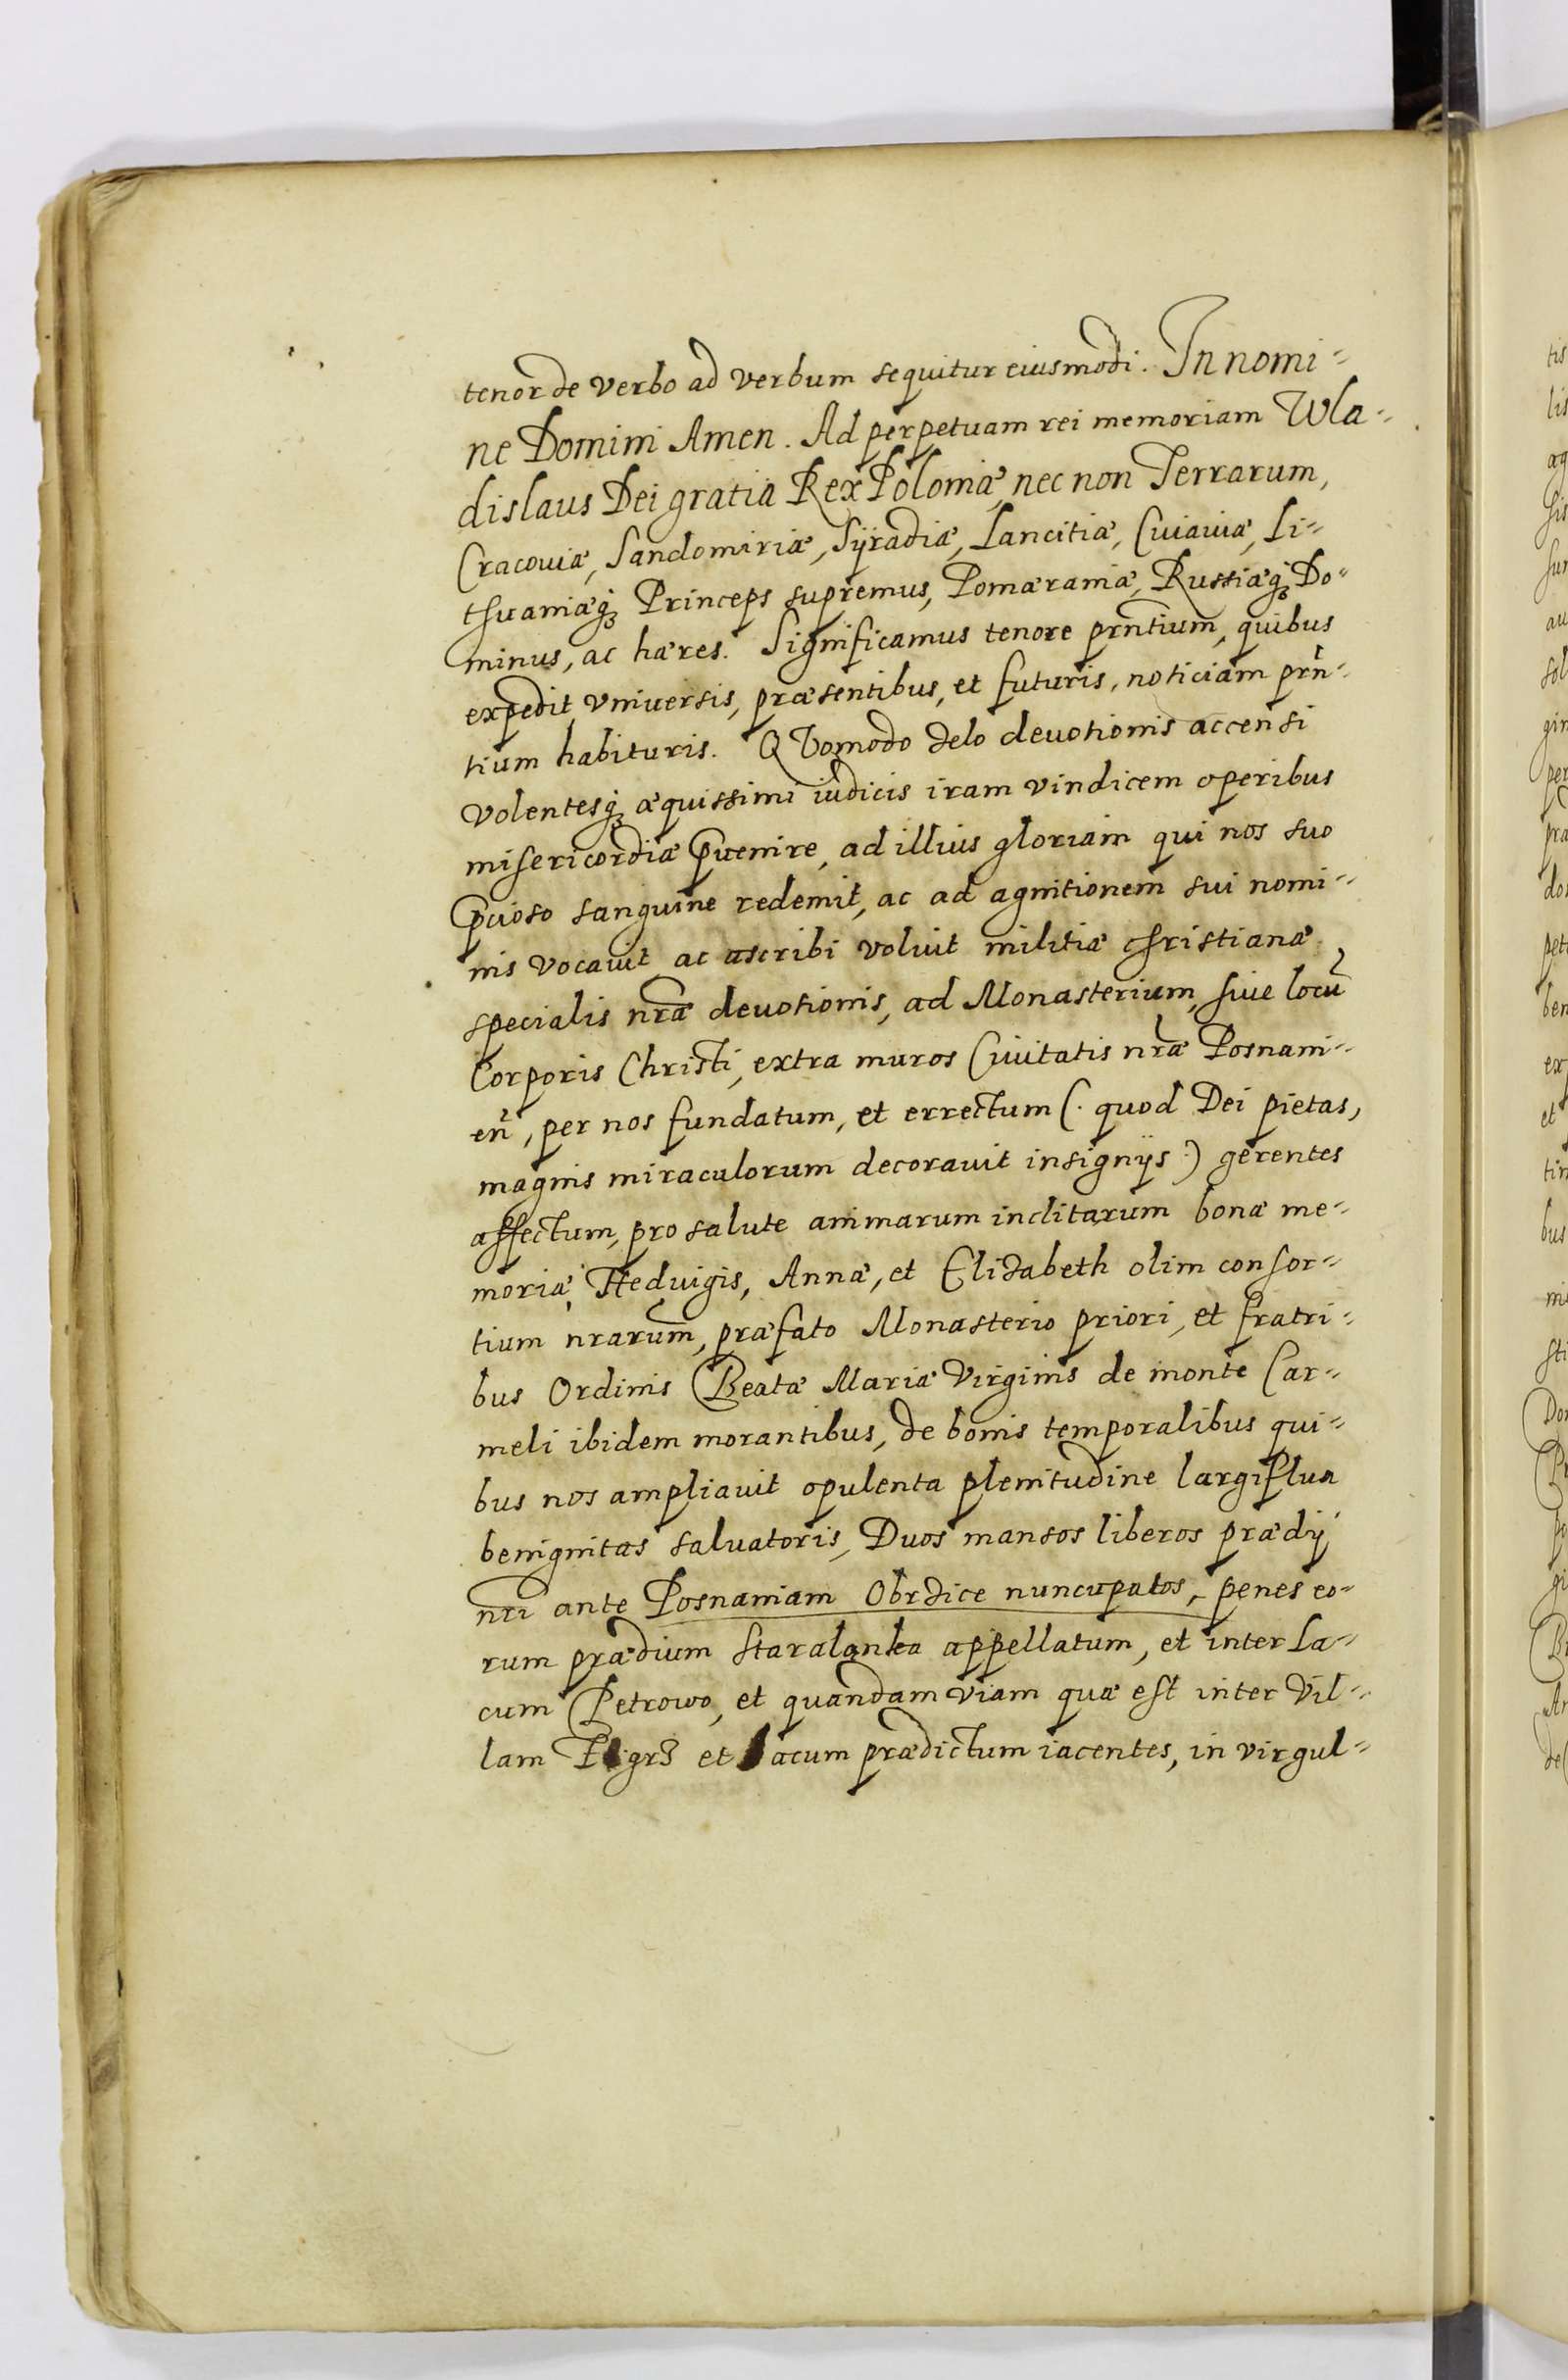 tenor de verbo ad verbum sequitur eiusmodi. In nomi=
ne Domini Amen. Ad perpetuam rei memoriam Wla=
dislaus Dei gratia Rex Poloniæ, nec non Terrarum,
Cracouiæ, Sandomiriæ, Syradiæ, Lancitiæ, Cuiauiæ, Li=
thuaniæq₃ Princeps supremus, Pomæraniæ, Russiæq₃ Do=
minus, ac hæres. Significamus tenore prñtium, quibus
expedit vniuersis, præsentibus, et futuris, noticiam prñ=
tium habituris. QVomodo zelo deuotionis accensi
volentesq₃ æquissimi iudicis iram vindicem operibus
misericordiæ p̄uenire, ad illius gloriam qui nos suo
p̄cioso sanguine redemit, ac ad agnitionem sui nomi=
nis vocauit ac ascribi voluit militiæ christianæ
specialis nr̃æ deuotionis, ad Monasterium, siue locũ
Corporis Christi, extra muros Ciuitatis nr̃æ Posnani=
eñ, per nos fundatum, et errectum (. quod Dei pietas,
magnis miraculorum decorauit insignÿs .) gerentes
affectum, pro salute animarum inclitarum bonæ me=
moriæ, Heduigis, Annæ, et Elizabeth olim consor=
tium nrarum, præfato Monasterio priori, et fratri=
bus Ordinis Beatæ Mariæ Virginis de monte Car=
meli ibidem morantibus, de bonis temporalibus qui=
bus nos ampliauit opulenta plenitudine largiflua
benignitas saluatoris, Duos mansos liberos prædÿ
nr̃i ante Posnaniam Obrzice nuncupatos, penes eo=
rum prædium Staralanka appellatum, et inter la=
cum Petrowo, et quandam viam quæ est inter Vil=
lam et lacum prædictum iacentes, in virgul=